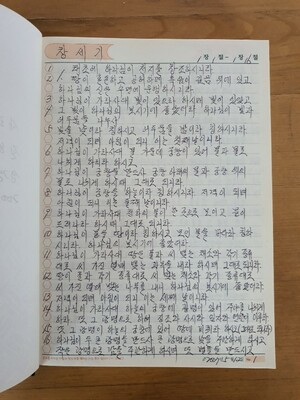 창세기
1장1절-1장16절
1 태초에 하나님이 천지를 창조하시니라
2 땅이 혼돈하고 공허하며 흑암이 깊음 위에 있고
하나님의 신은 수면에 운행하시니라
3 하나님이 가라사대 빛이 있으라 하시매 빛이 있었고
4 그 빛이 하나님의 보시기에 좋았더라 하나님이 빛과
어두움을 나누사
5 빛을 낮이라 칭하시고 어두움을 밤이라 칭하시니라
저녁이 되며 아침이 되니 이는 첫째날이니라
6 하나님이 가라사대 물 가운데 궁창이 있어 물과 물로
나뉘게 하리라 하시고
7 하나님이 궁창을 만드사 궁창 아래의 물과 궁창 위의
물로 나뉘게 하시매 그대로 되니라
8 하나님이 궁창을 하늘이라 칭하시니라 저녁이 되며
아침이 되니 이는 둘째 날이니라
9 하나님이 가라사대 천하의 물이 한곳으로 모이고 뭍이
드러나라 하시매 그대로 되니라
10 하나님이 뭍을 땅이라 칭하시고 모인 물을 바다라 칭하
시니라 하나님의 보시기에 좋았더라
11 하나님이 가라사대 땅은 풀과 씨 맺는 채소와 각기 종류
대로 씨 가진 열매 맺는 과목을 내라 하시매 그대로 되니라
12 땅이 풀과 각기 종류대로 씨 맺는 채소와 각기 종류대로
씨 가진 열매 맺는 나무를 내니 하나님의 보시기에 좋았더라
13 저녁이 되며 아침이 되니 이는 셋째 날이니라
14 하나님이 가라사대 하늘의 궁창에 광명이 있어 주야를 나뉘게
하라 또 그 광명으로 하여 징조와 사시와 일자와 연한이 이루라
15 또 그 광명이 하늘의 궁창에 있어 땅에 비취라 하시고(그대로 되니라)
16 하나님이 두 큰 광명을 만드사 큰 광명으로 낮을 주관하게 하시고
작은 광명으로 밤을 주관하게 하시며 또 별들을 만드시고